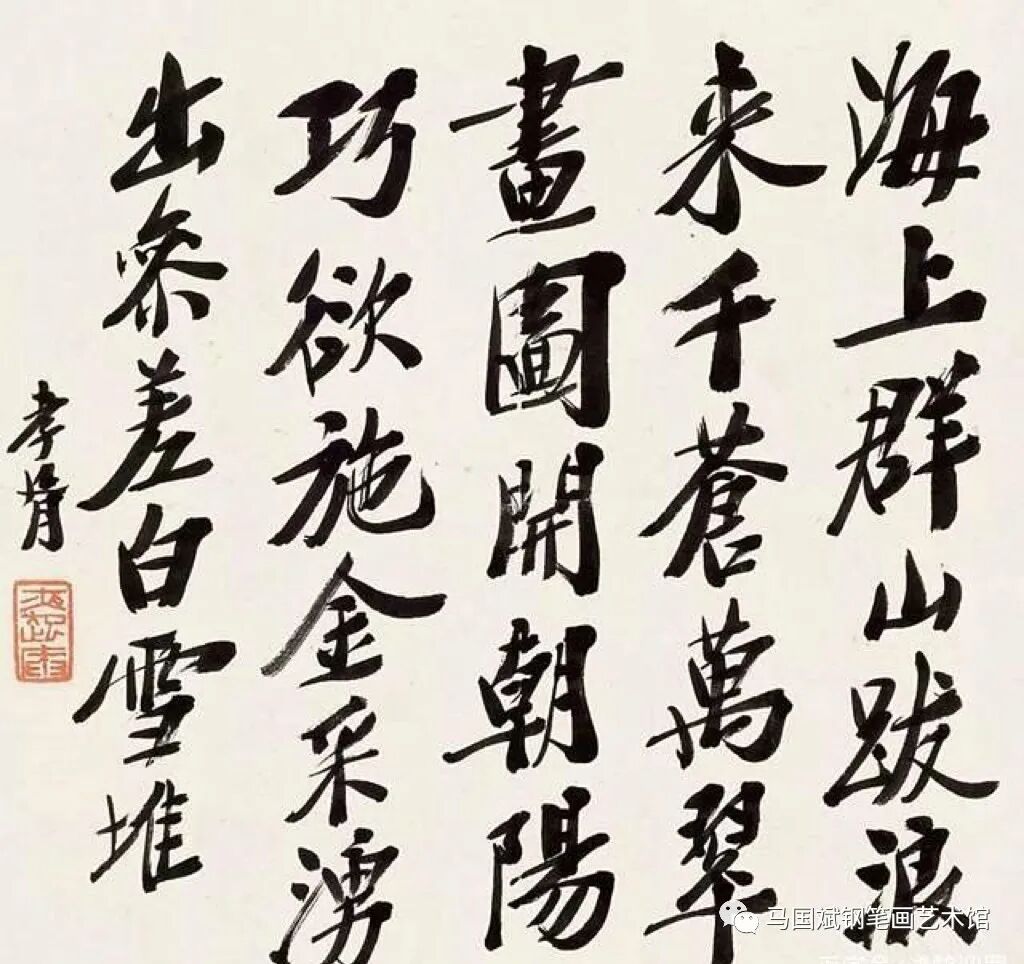 海上群山跋浪
来千蒼萬翠
畫圖開朝陽
巧欲施金采湧
出參差白雪堆
孝胥
马国斌钢笔画艺术馆